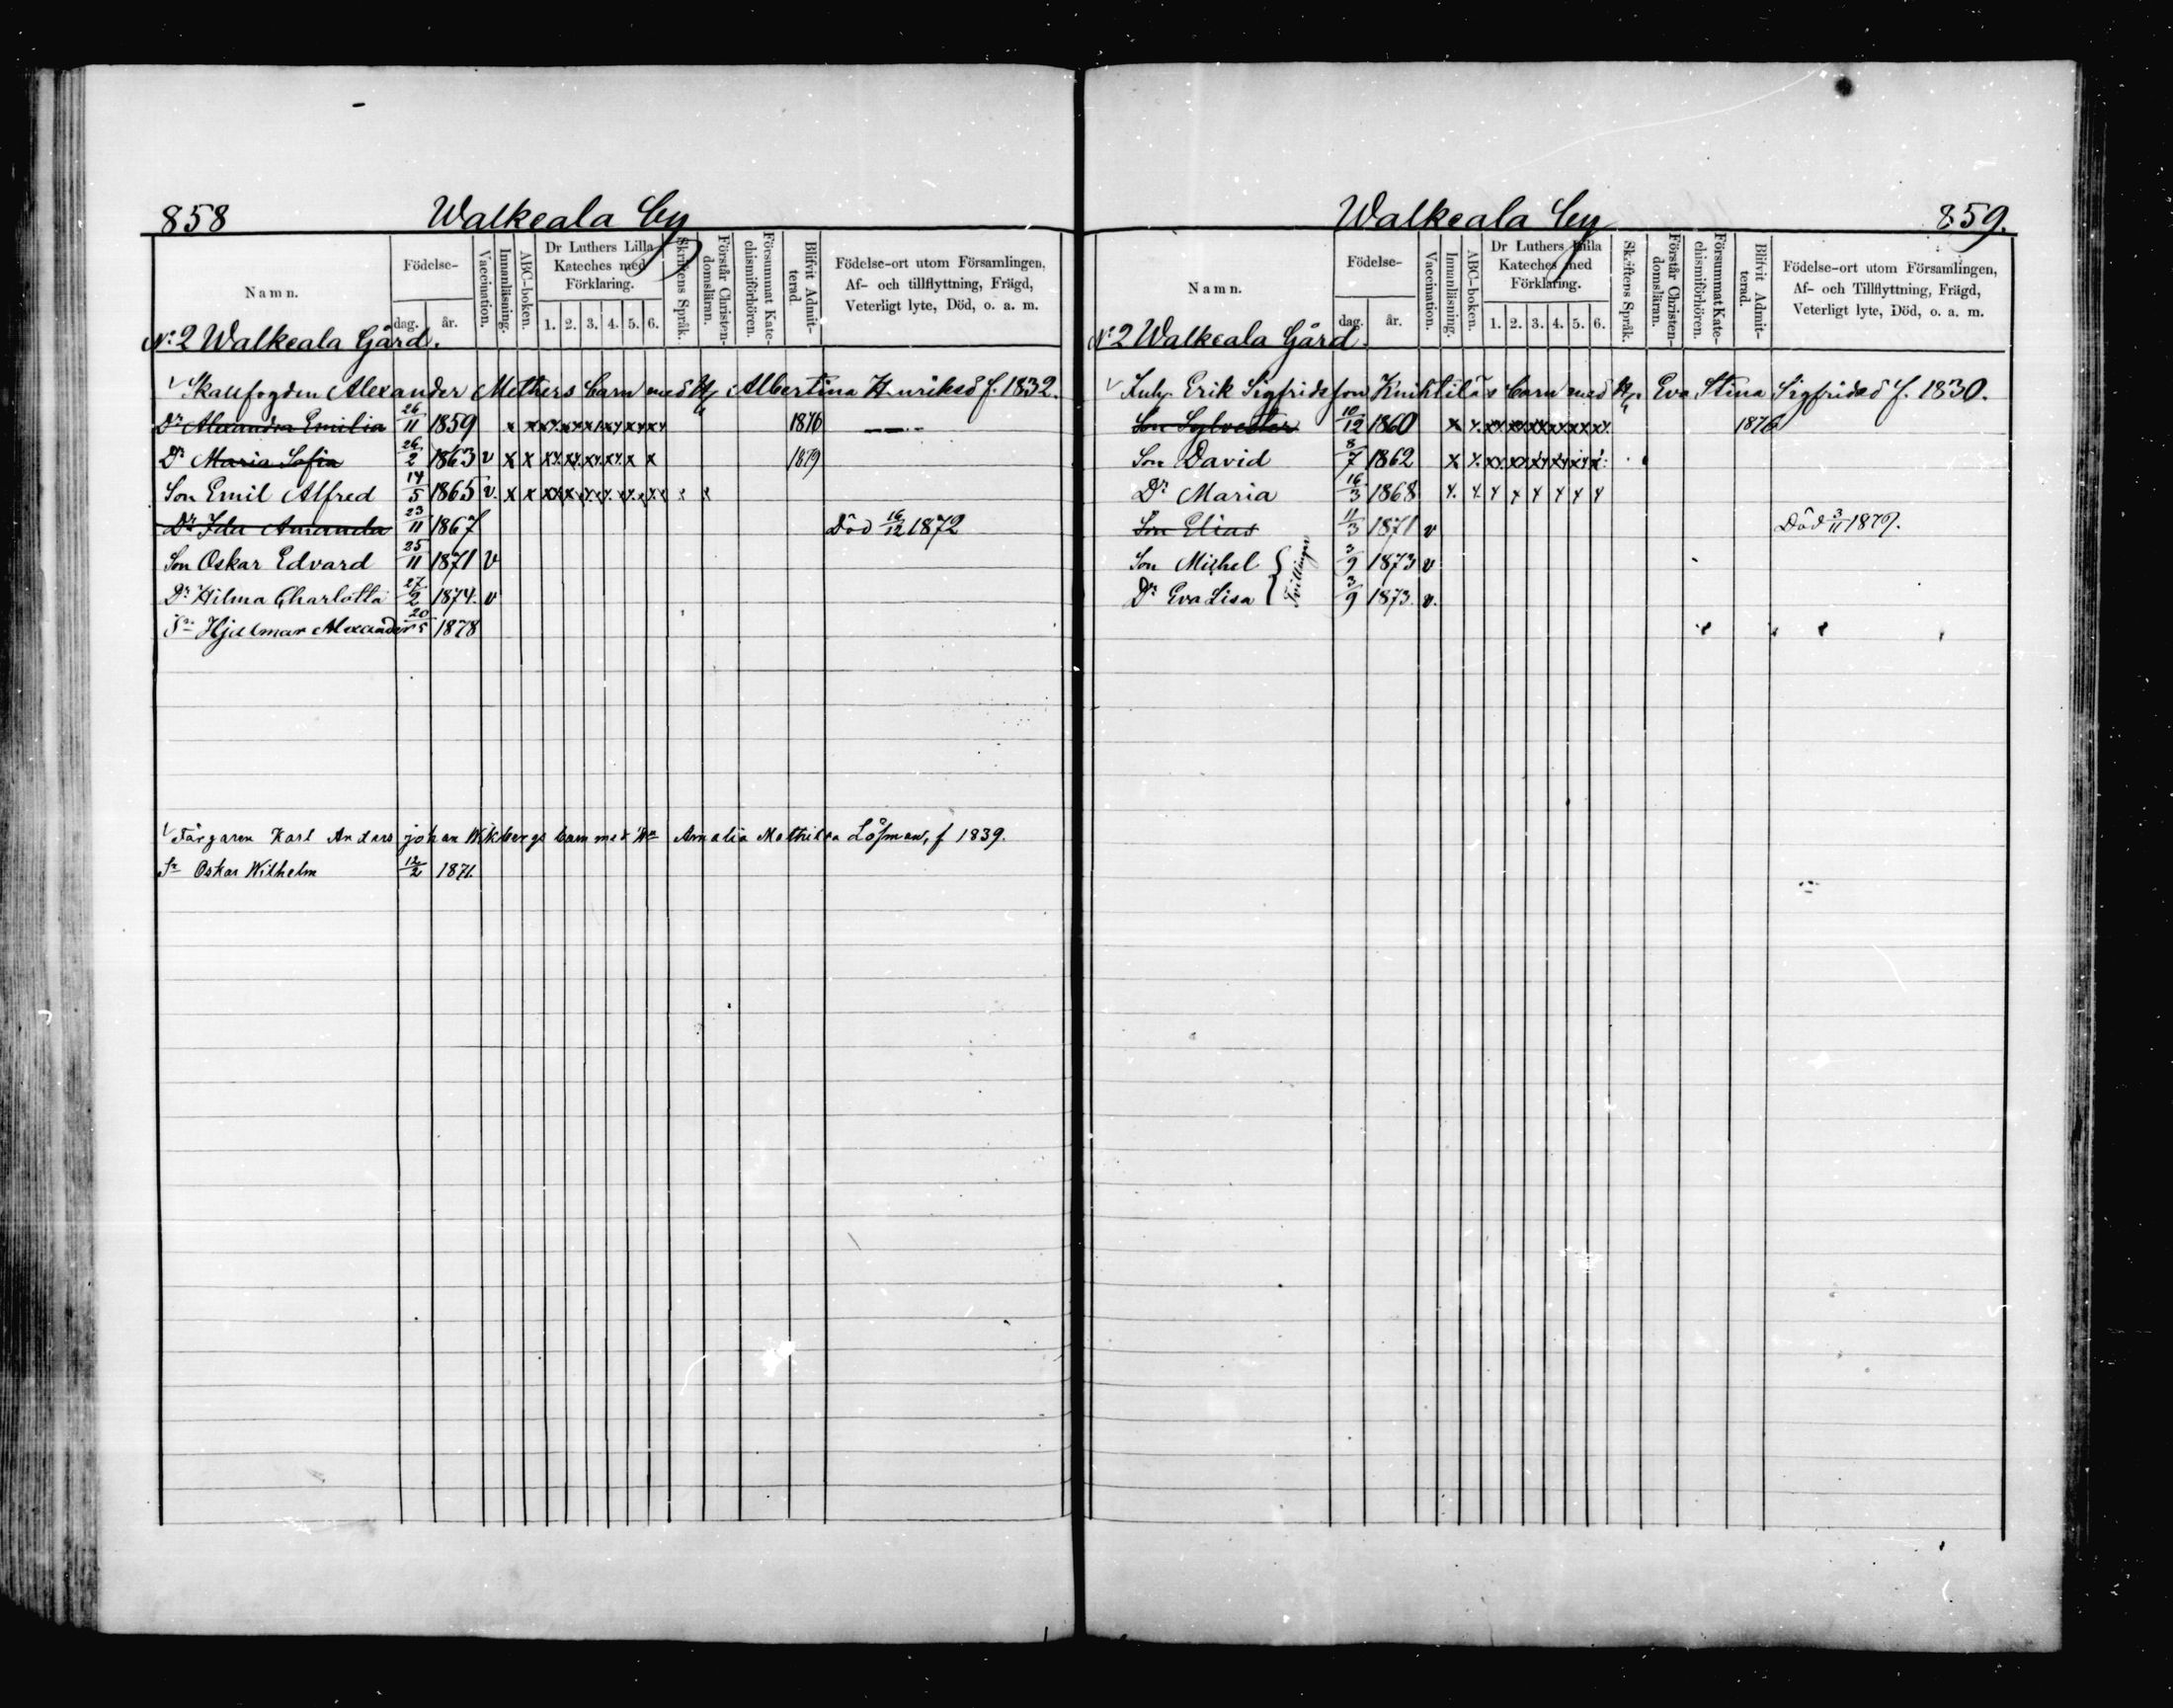 858 Walkeala by
Namn. Födelse- dag. år. Vaccination. Innanläsning. ABC-boken. Dr Luthers Lilla Kateches med Förklaring. 1. 2. 3. 4. 5. 6. Skriftens Språk. Förstår Christendomsläran. Försummat Katechismiförhören. Blifvit Admitterad. Födelse-ort utom Församlingen, Af- och tillflyttning, Frägd, Veterligt lyte, Död, o. a. m.
N:2 Walkeala Gård.
Alexander Methers barn med H Albertina Henriksd f. 1832.
Dr Alexandra Emilia 26/11 1859 x x x x x x x x 1876
Dr Maria Sofia 26/2 1863 v x x x x x x x x 1879
Son Emil Alfred 14/5 1865 v. x x x x x x x x x x
Dr Ida Amanda 23/11 1867 Död 16/12 1872
Son Oskar Edvard 25/11 1871 v
Dr Hilma Charlotta 27/2 1874. v
Sn Hjalmar Alexander 20/5 1878
Färgaren Karl Anders Johan Wikbergs barn med Hn Amalia Mathilda Löfman, f 1839.
Sn Oskar Wilhelm 12/2 1871.
Walkeala by 859.
Namn. Födelse- dag. år. Vaccination. Innanläsning. ABC-boken. Dr Luthers Lilla Kateches med Förklaring. 1. 2. 3. 4. 5. 6. Skriftens Språk. Förstår Christendomsläran. Försummat Katechismiförhören. Blifvit Admitterad. Födelse-ort utom Församlingen, Af- och Tillflyttning, Frägd, Veterligt lyte, Död, o. a. m.
N:2 Walkeala Gård
Inhy. Erik Sigfridsson barn med H. Eva Stina Sigfridsd f. 1830.
Son Sylvester 10/12 1860 x x x x x x x x 1876
Son David 8/7 1862 x x x x x x x x
Dr Maria 16/3 1868 x x x x x x x x
Son Elias 11/3 1871 v Död 3/11 1879.
Son Michel Tvillingar 3/9 1873 v
Dr Eva Lisa 3/9 1873. v.